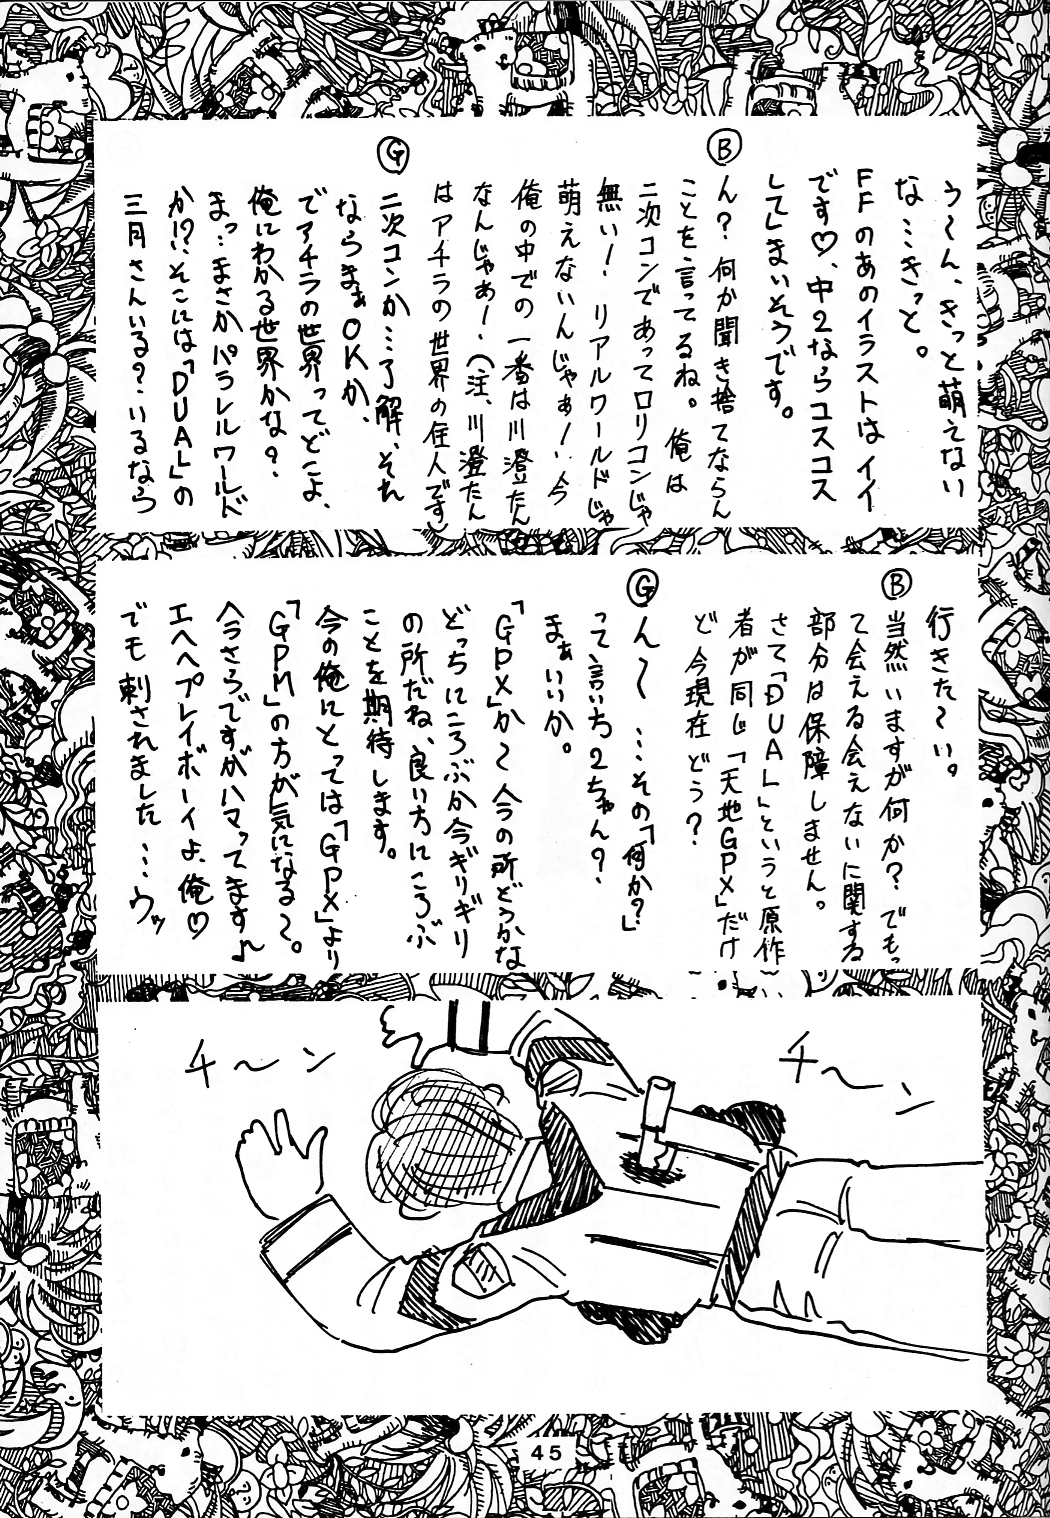 う〜ん、きっと萌えない
な…きっと。
FFのあのイラストはイイ
です♡、中2ならコスコス
してしまいそうです。
Ⓑ
ん?何か聞き捨てならん
ことを言ってるね。俺は
二次コンであってロリコンじゃ
無い!リアルワールドじゃ
萌えないんじゃぁ!今
俺の中での一番は川澄たん
なんじゃぁー(注、川澄たん
はアチラの世界の住人です)
Ⓖ
二次コンか…了解、それ
ならまぁOKか、
でアチラの世界ってどこよ、
俺にわかる世界かな?
まっ…まさかパラレルワールド
か!?、そこには「DUAL」の
三月さんいる?いるなら
行きた〜い。
Ⓑ
当然いますが何か?でも
て会える会えないに関する
部分は保障しません。
さて「DUAL」というと原作
者が同じ「天地GPX」だけ
ど今現在どう?
Ⓖ
ん〜…その「何か?」
って言い方2ちゃん?
まぁいいか。
「GPX」か〜今の所どうかな
どっちにころぶか今ギリギリ
の所だね、良い方にころぶ
ことを期待します。
今の俺にとっては「GPX」より
「GPM」の方が気になる〜。
今さらですがハマってます♪
エヘヘプレイボーイよ、俺♡
でモ刺されました…ウッ
チ〜ン
チ〜ン
45